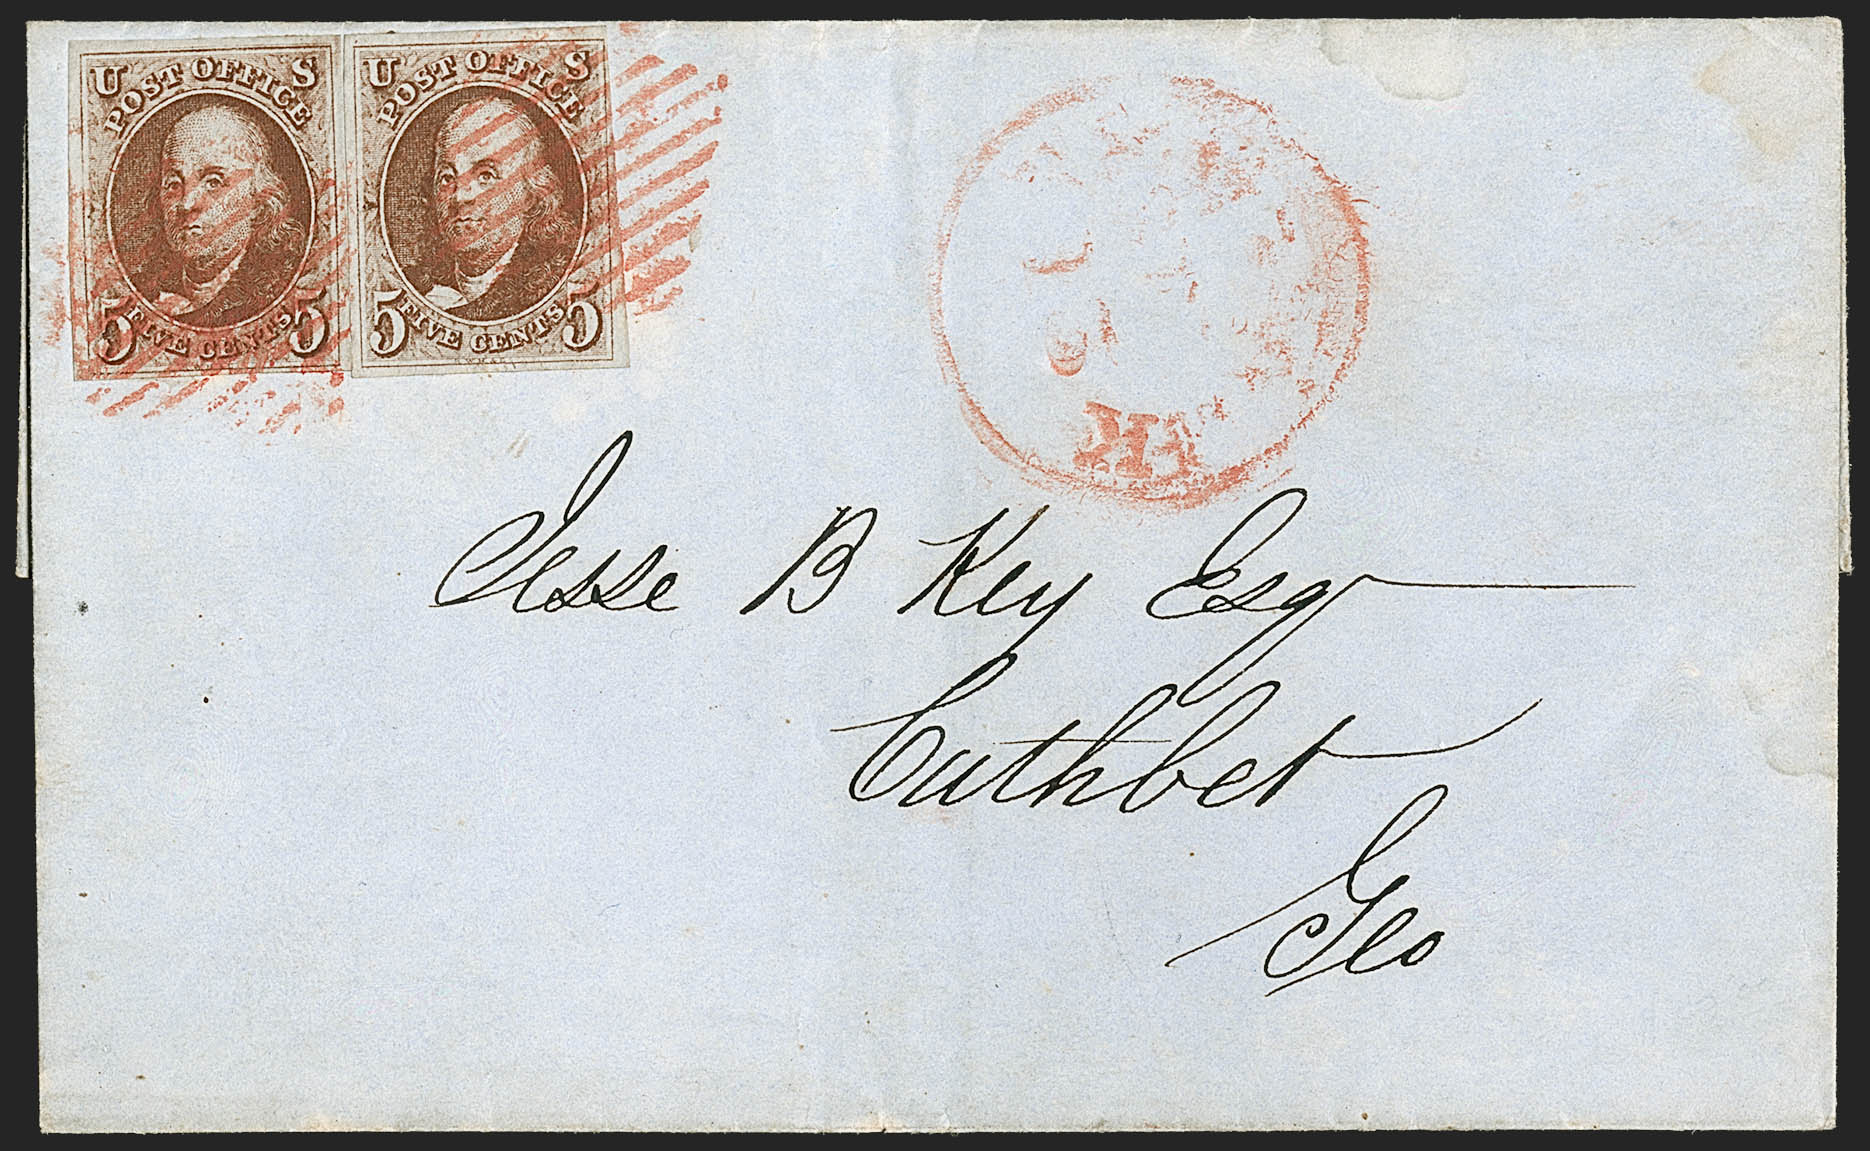 U S
POST OFFICE
5 FIVE CENTS 5
U S
POST OFFICE
5 FIVE CENTS 5
Jesse B Key Esq
Cuthbet
Geo